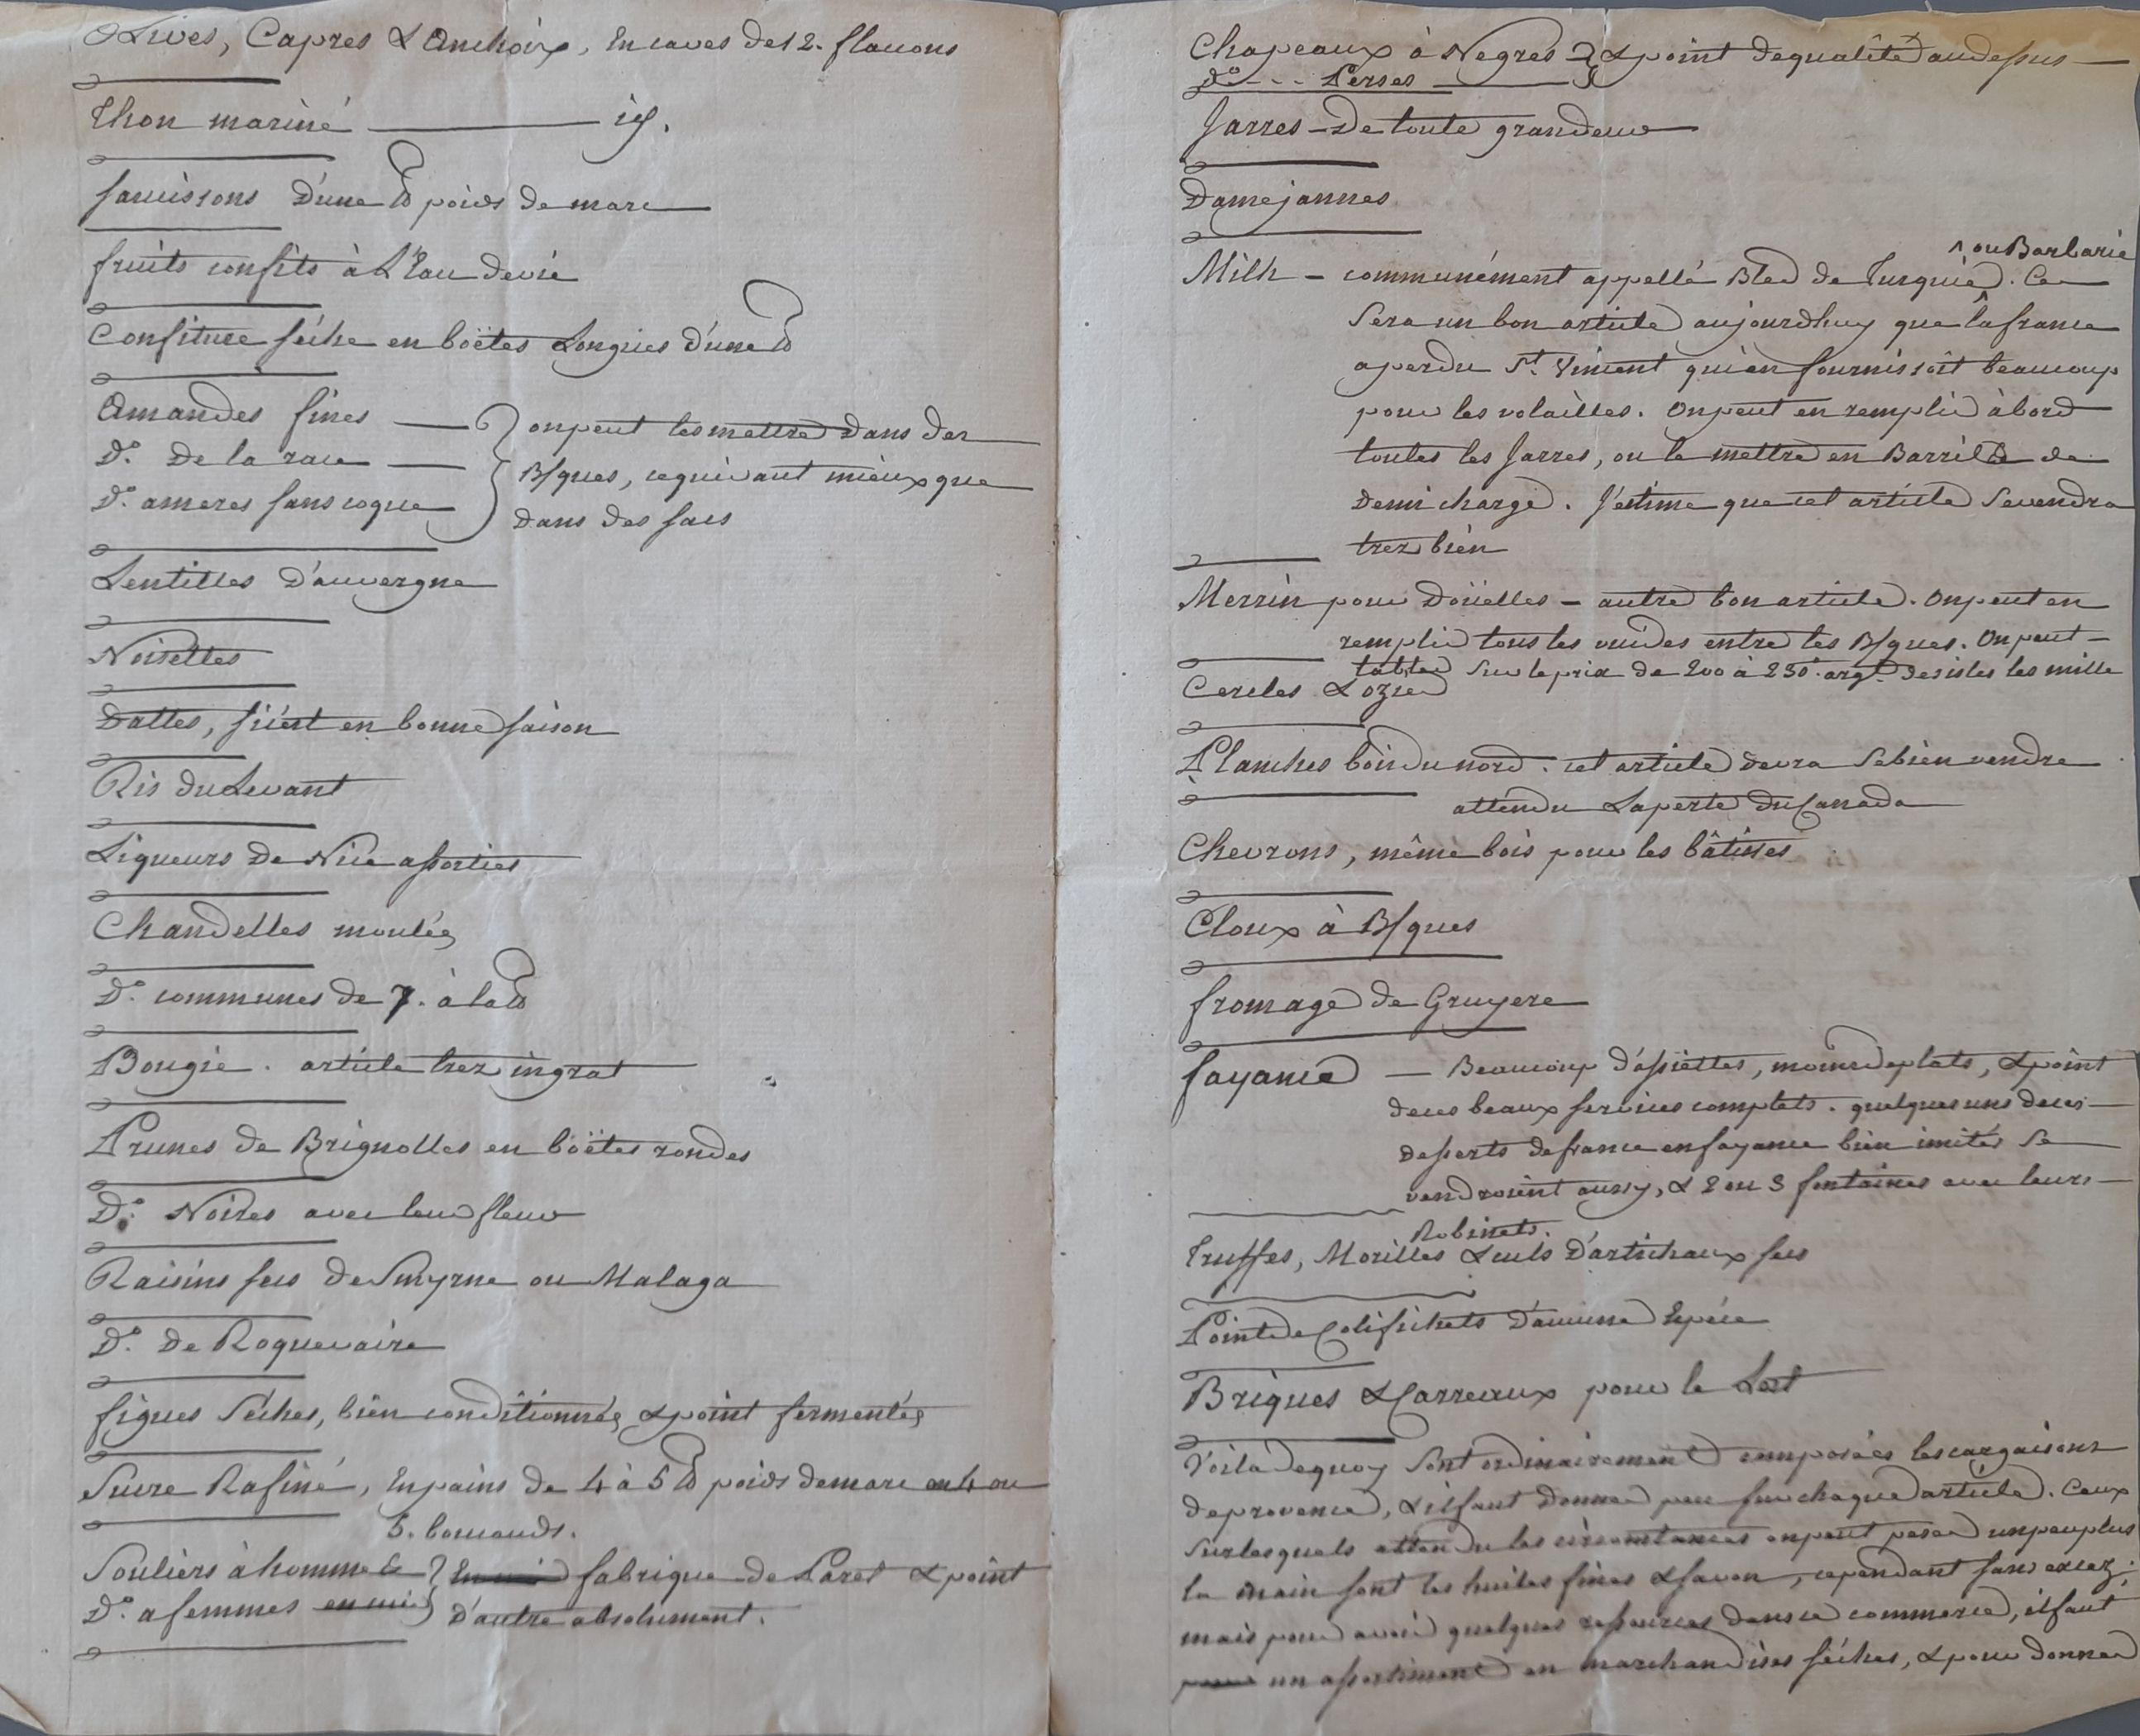 Olives, Capres & Anchoix, En caves de 12. flacons
Thon mariné — id.
saucissons d'une ℔ poids de marc
fruits confits à L'Eau devie
Confiture séche en boëtes Longues d'une ℔
Amandes fines — onpeut les mettre dans des
D.° De la race — B/ques, cequi vaut miéux que
D.° ameres sans coque dans des sacs
Lentilles D'auvergne
Noisettes
Dattes, si c'est en bonne saison
Ris du Levant
Liqueurs de Nice assorties
Chandelles moulées
D.° communes de 7. à la ℔
Bougie. article trez ingrat
Prunes de Brignolles en boëtes rondes
D.° Noires avec leur fleur
Raisins secs de Smyrne ou Malaga
D.° De Roquevaire
figues séches, bien conditionnées & point fermentées
Sucre Rafiné, En pains de 4 à 5 ℔ poids de marc ou 4 ou
5. boucauds.
Souliers à homme & fabrique de Paret & point
D.° a femmes d'autre absolument.
Chapeaux à Negres & point dequalité audessus —
D.° - - - Perses —
Jarres — De toute grandeur
Damejannes
Milh — communément appellé Bled de Turquie ^ ou Barbarie. Ce
sera un bon article aujourdhuy que la france
aperdu S.t Vincent qui en fournissoit beaucoup
pour les volailles. On peut en remplir à bord
toutes les Jarres, ou le mettre en Barrils de
demi charge. J'éstime que cet article se vendra
trez bién
Merrin pour Doüelles — autre bon article. On peut en
remplir tous les vuides entre les B/ques. On peut —
tabler sur le prix de 200 à 250 arg.t des isles les mille
Cercles & Ozier
Planches bois du nord. cet article devra se bien vendre
attendu La perte du Canada
Chevrons, même bois pour les bâtisses
Cloux à B/ques
fromage de Gruyere
fayance — Beaucoup d'assiéttes, moins de plats, & point
de ces beaux services complets. quelques uns de ces —
desserts de france en fayance bien imités se
vendroient aussy, & 2 ou 3 fontaines avec leurs —
Robinets.
Truffes, Morilles & culs D'artichaux secs
Point de Colifichets D'aucune Espéce
Briques & Carreaux pour le Lest
Voilà de quoy sont ordinairement composées les cargaisons
de provence, & il faut donner peu sur chaque article. Ceux
sur lesquels attendu les circonstances on peut peser un peu plus
la main sont les huiles fines & savon, cependant sans excez.
mais pour avoir quelques ressources dans ce commerce, il faut
un assortiment en marchandises séches, & pour donner